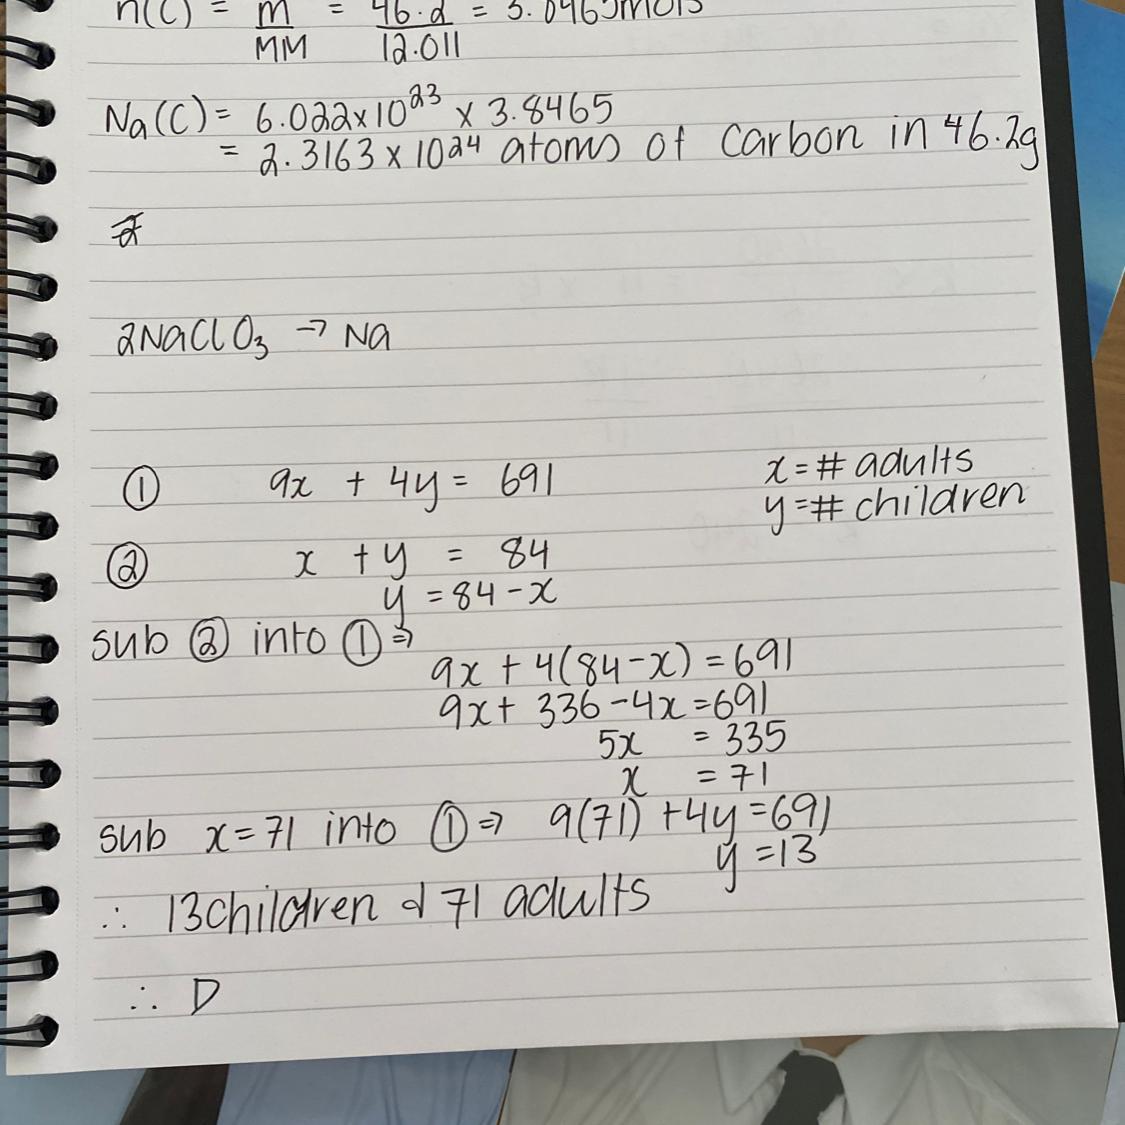 n(C) = m/MM = 46.2/12.011 = 3.8465mols
Na(C) = 6.022x10^23 x 3.8465
= 2.3163 x 10^24 atoms of carbon in 46.2g
2NaClO3 → Na
① 9x + 4y = 691 x = # adults
y = # children
② x + y = 84
y = 84 - x
sub ② into ① ⇒
9x + 4(84-x) = 691
9x + 336 - 4x = 691
5x = 335
x = 71
sub x = 71 into ① ⇒ 9(71) + 4y = 691
y = 13
∴ 13children & 71 adults
∴ D